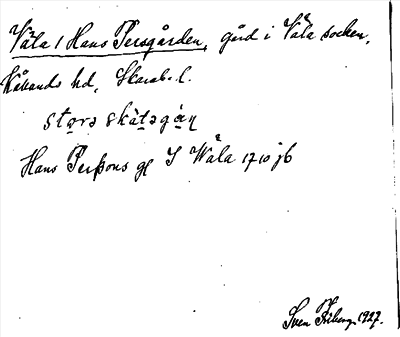 Våla 1 Hans Persgården, gård i Våla socken,
Kåkinds hd, Skarab. l.
stərə skàtəgán
Hans Perßons gl I Wåla 1710 jb
Sven Friberg 1927.